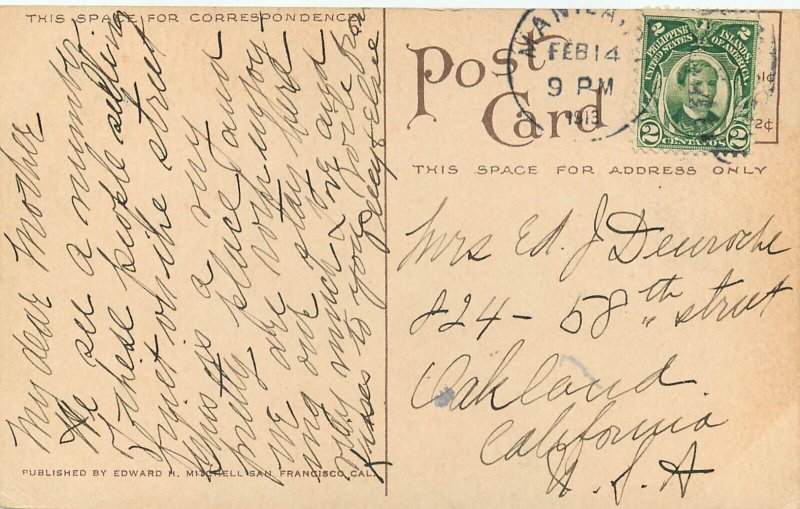 THIS SPACE FOR CORRESPONDENCE
My dear Mother
We see a number
of these people selling
fruit on the street
is a very
pretty place and
we are both enjoy-
ing our stay here
very much. Love and
kisses to you
Elsie
PUBLISHED BY EDWARD H. MITCHELL SAN FRANCISCO, CAL.
Post
Card
MANILA, P.I.
FEB 14
9 PM
1913
PHILIPPINE ISLANDS
UNITED STATES OF AMERICA
2 CENTAVOS 2
2¢
THIS SPACE FOR ADDRESS ONLY
Mrs Ed. J Deuroche
824 - 58th street
Oakland
California
U. S. A